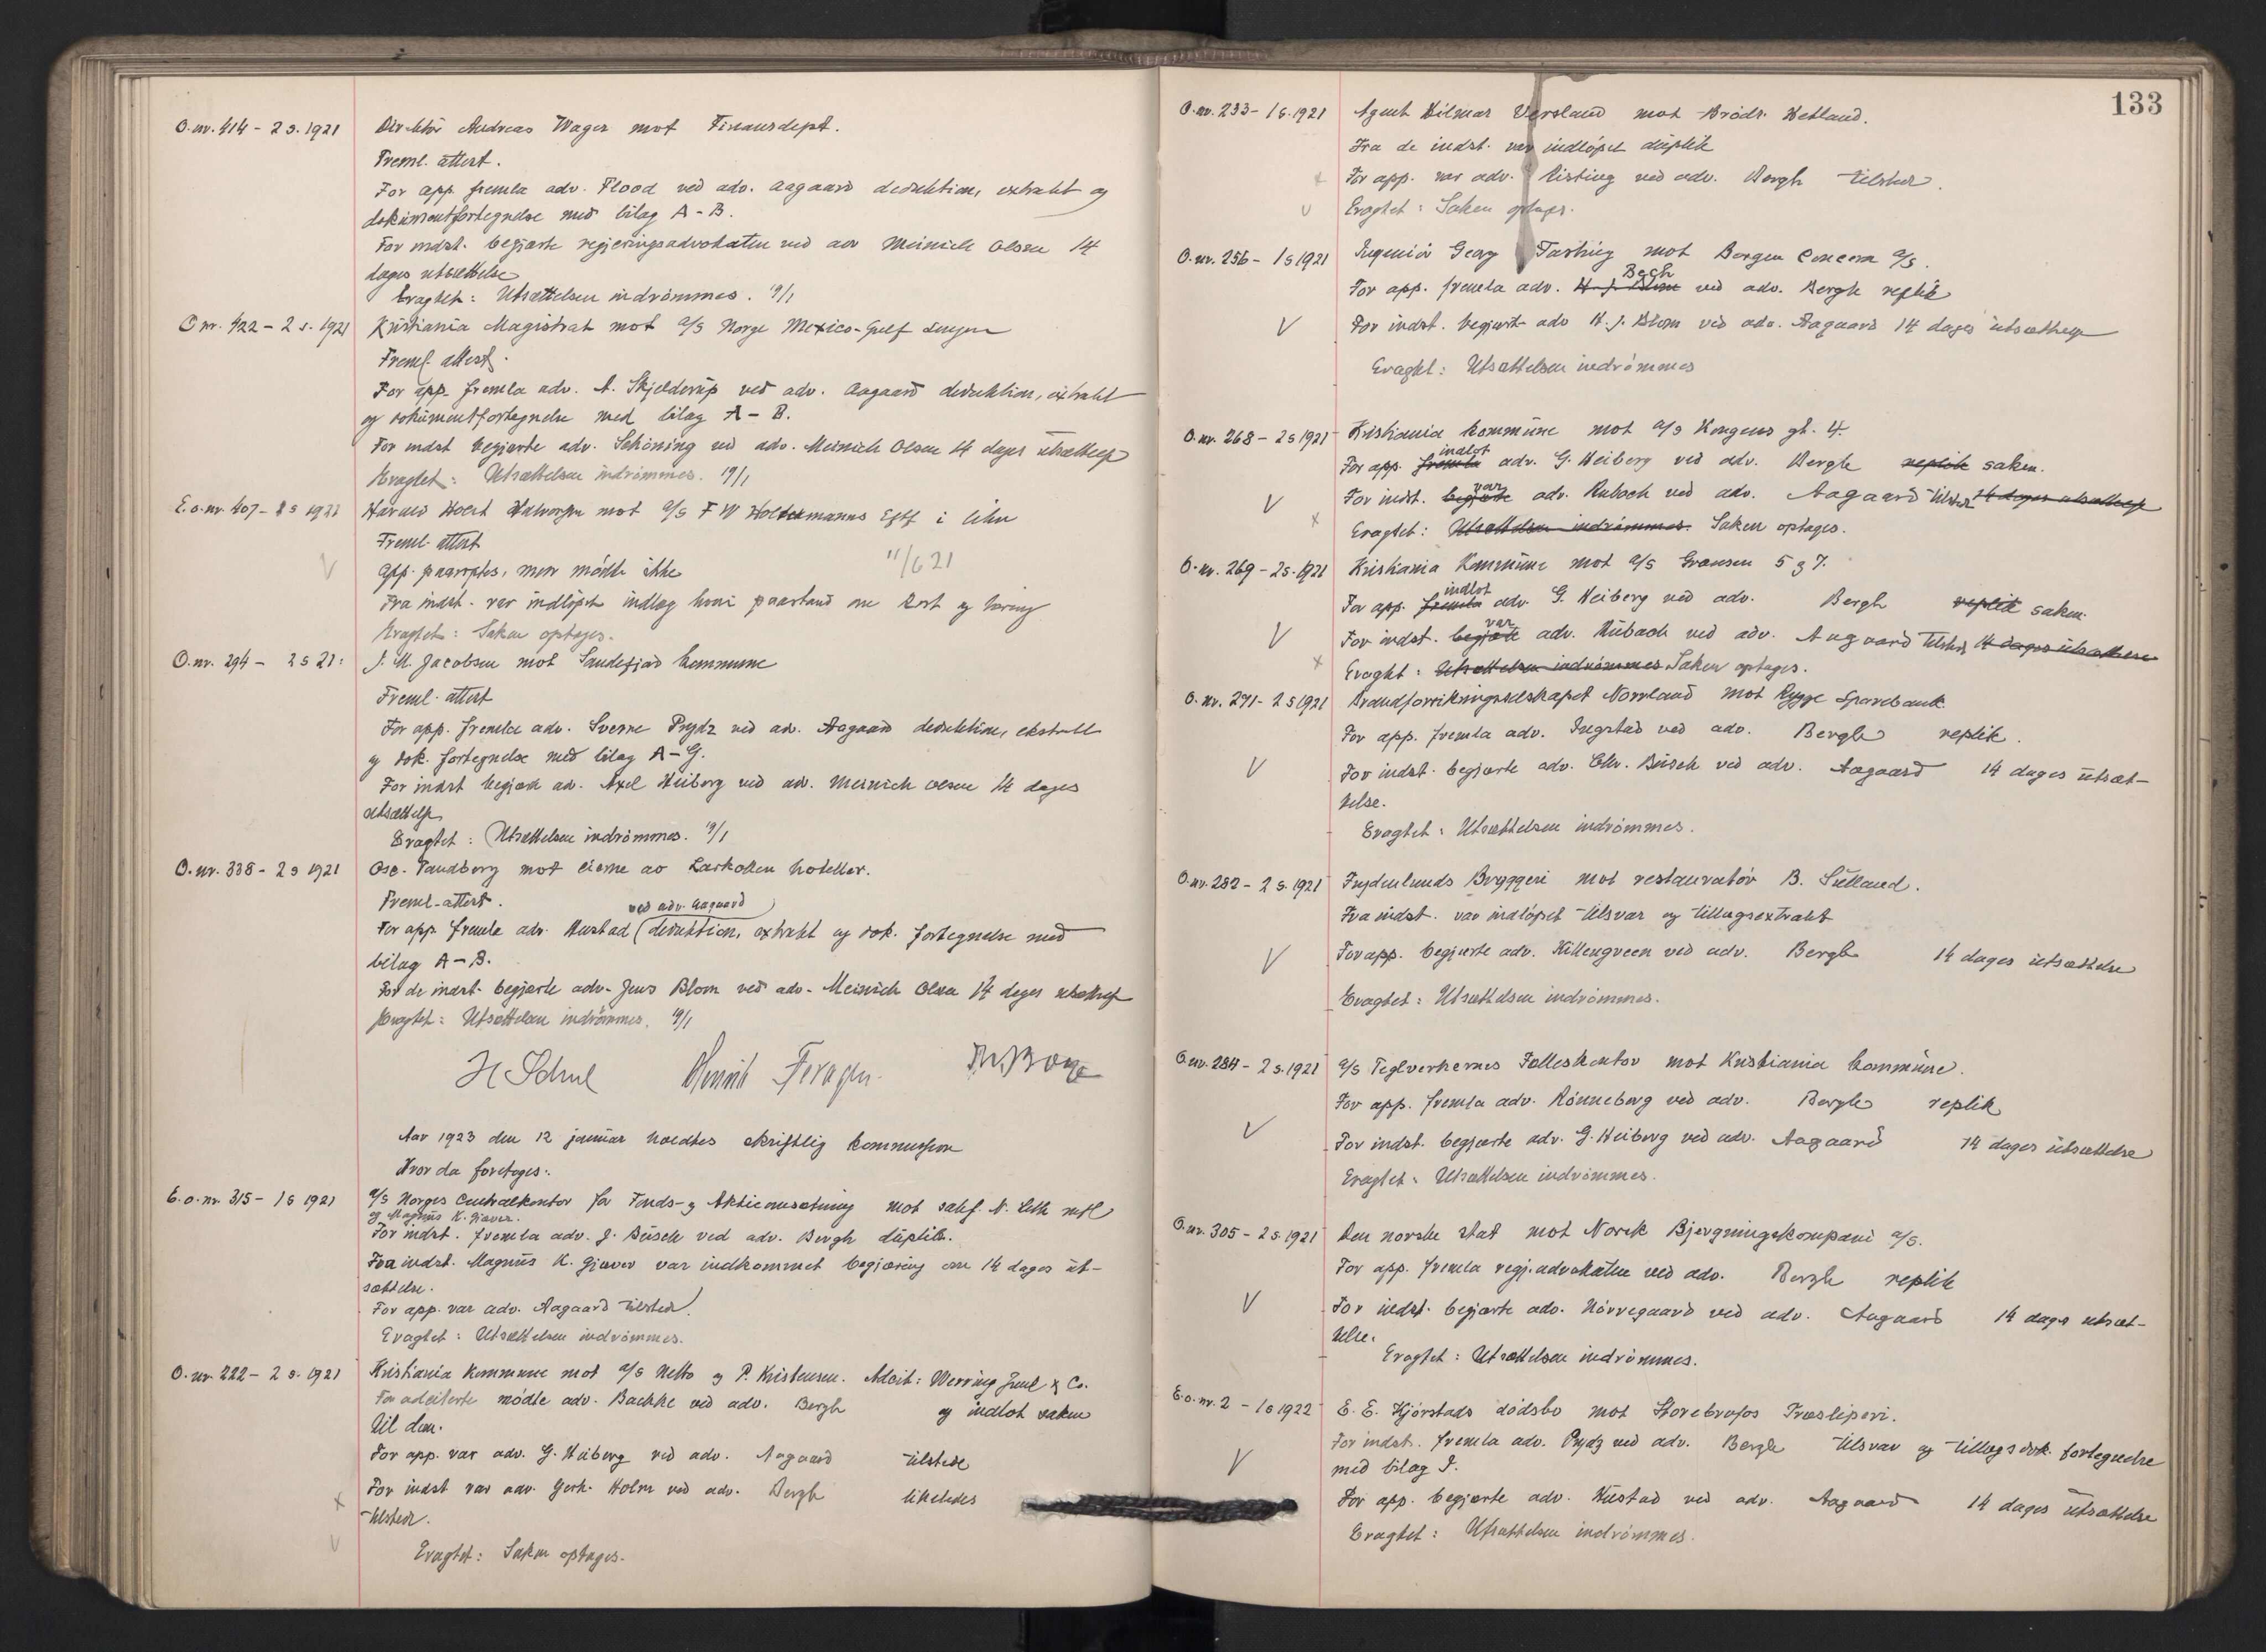 O.nr. 414 - 2 s. 1921 Direktör Andreas Wager mot Finansdept.
Freml. attest.
For app. fremla adv. Flood ved adv. Aagaard deduktion, extrakt og
dokumentfortegnelse med bilag A - B.
For indst. begjærte regjeringsadvokaten ved adv Meinich Olsen 14
dages utsættelse
Eragtet: Utsættelsen indrömmes. 19/1
O nr. 422 - 2 s. 1921 Kristiania Magistrat mot A/S Norge Mexico-Gulf Linjen
Freml. attest.
For app. fremla adv. A. Skjelderup ved adv. Aagaard deduktion, extrakt
og dokumentfortegnelse med bilag A - B.
For indst begjærte adv. Schöning ved adv. Meinich Olsen 14 dages utsættelse
Eragtet: Utsættelsen indrömmes. 19/1
E.o.nr. 407 - 2 s 1921 Harald Holst Halvorsen mot A/S F W Holtermanns Eftf i likv
Freml. attest
App. paaroptes, men mödte ikke 11/6 21
Fra indst. var indlöpet indlag hvori paastand om kost og tæring
Eragtet: Saken optages.
O.nr. 294 - 2 s 21: J. M. Jacobsen mot Sandefjord kommune
Freml. attest
For app. fremla adv. Sverre Prydz ved adv. Aagaard deduktion, ekstrakt
og dok. fortegnelse med bilag A - G.
For indst begjærte adv. Axel Heiberg ved adv. Meinich Olsen 14 dages
utsættelse
Eragtet: Utsættelsen indrömmes. 19/1
O.nr. 338 - 2 s 1921 Osc. Sandberg mot eierne av Larkollen hoteller.
Freml. attest.
ved adv. Aagaard
For app. fremla adv. Hustad deduktion, extrakt og dok. fortegnelse med
bilag A - B.
For de indst. begjærte adv. Jens Blom ved adv. Meinich Olsen 14 dages utsættelse
Eragtet: Utsættelsen indrömmes. 19/1
Aar 1923 den 12 januar holdtes skriftlig kommission
Hvor da foretages:
E.o.nr. 315 - 1 s 1921 A/S Norges Centralkontor for Fonds- og Aktieomsætning mot sakf. N. Leth
og Magnus K. Gjæver.
For indst. fremla adv. J. Busch ved adv. Bergh duplik.
Fra indst. Magnus K. Gjæver var indkommet begjæring om 14 dages ut-
sættelse.
For app. var adv. Aagaard tilstede.
Eragtet: Utsættelsen indrömmes.
O.nr. 222 - 2 s. 1921 Kristiania kommune mot A/S Netto og P. Kristensen. Adcit: Werring Juul & Co.
For adciterte mödte adv. Bachke ved adv. Bergh og indlot saken
til dom.
For app. var adv. G. Heiberg ved adv. Aagaard tilstede
For indst var adv. Gerh. Holm ved adv. Bergh likeledes
tilstede.
Eragtet: Saken optages.
133
O.nr. 233 - 1 s. 1921 Agent Hilmar Versland mot Brödr. Hetland.
Fra de indst. var indlöpet duplik
For app. var adv. Risting ved adv. Bergh tilstede.
Eragtet: Saken optages.
O.nr. 256 - 1 s 1921 Ingeniör Georg Tasting mot Bergen Concern A/S.
Bech
For app. fremla adv. H. J. Blom ved adv. Bergh replik
For indst. begjærte adv H. J. Blom ved adv. Aagaard 14 dages utsættelse
Eragtet: Utsættelsen indrömmes
O.nr. 268 - 2 s 1921 Kristiania kommune mot A/S Kongens gt. 4.
indlot
For app. fremla adv. G. Heiberg ved adv. Bergh replik saken.
var
For indst. begjærte adv. Rubach ved adv. Aagaard tilstede 14 dages utsættelse
Eragtet: Utsættelsen indrömmes. Saken optages.
O.nr. 269 - 2 s. 1921 Kristiania Kommune mot A/S Grænsen 5 og 7.
indlot
For app. fremla adv. G. Heiberg ved adv. Bergh replik saken.
var
For indst. begjærte adv. Rubach ved adv. Aagaard tilstede 14 dages utsættelse
Eragtet: Utsættelsen indrömmes Saken optages.
O.nr. 271 - 2 s 1921 Brandforsikringsselskapet Norrland mot Rygge Sparebank.
For app. fremla adv. Ingstad ved adv. Bergh replik.
For indst. begjærte adv. Chr. Busch ved adv. Aagaard 14 dages utsæt-
telse.
Eragtet: Utsættelsen indrömmes.
O.nr. 282 - 2 s. 1921 Frydenlunds Bryggeri mot restauratör B. Sulland.
Fra indst. var indlöpet tilsvar og tillægsextrakt
For app. begjærte adv. Killengreen ved adv. Bergh 14 dages utsættelse
Eragtet: Utsættelsen indrömmes.
O.nr. 284 - 2 s. 1921 A/S Teglverkernes Felleskontor mot Kristiania kommune.
For app. fremla adv. Rönneberg ved adv. Bergh replik
For indst. begjærte adv. G. Heiberg ved adv. Aagaard 14 dages utsættelse
Eragtet: Utsættelsen indrömmes.
O.nr. 305 - 2 s. 1921 Den norske stat mot Norsk Bjergningskompani A/S.
For app. fremla regj.advokaten ved adv. Bergh replik
For indst. begjærte adv. Nörregaard ved adv. Aagaard 14 dages utsæt-
telse.
Eragtet: Utsættelsen indrömmes.
E.o.nr. 2 - 1 s 1922 E. E. Hjörstads dödsbo mot Storebrofos Træsliperi.
For indst. fremla adv. Prydz ved adv. Bergh tilsvar og tillægsdok. fortegnelse
med bilag I.
For app. begjærte adv. Hustad ved adv. Aagaard 14 dages utsættelse
Eragtet: Utsættelsen indrömmes.